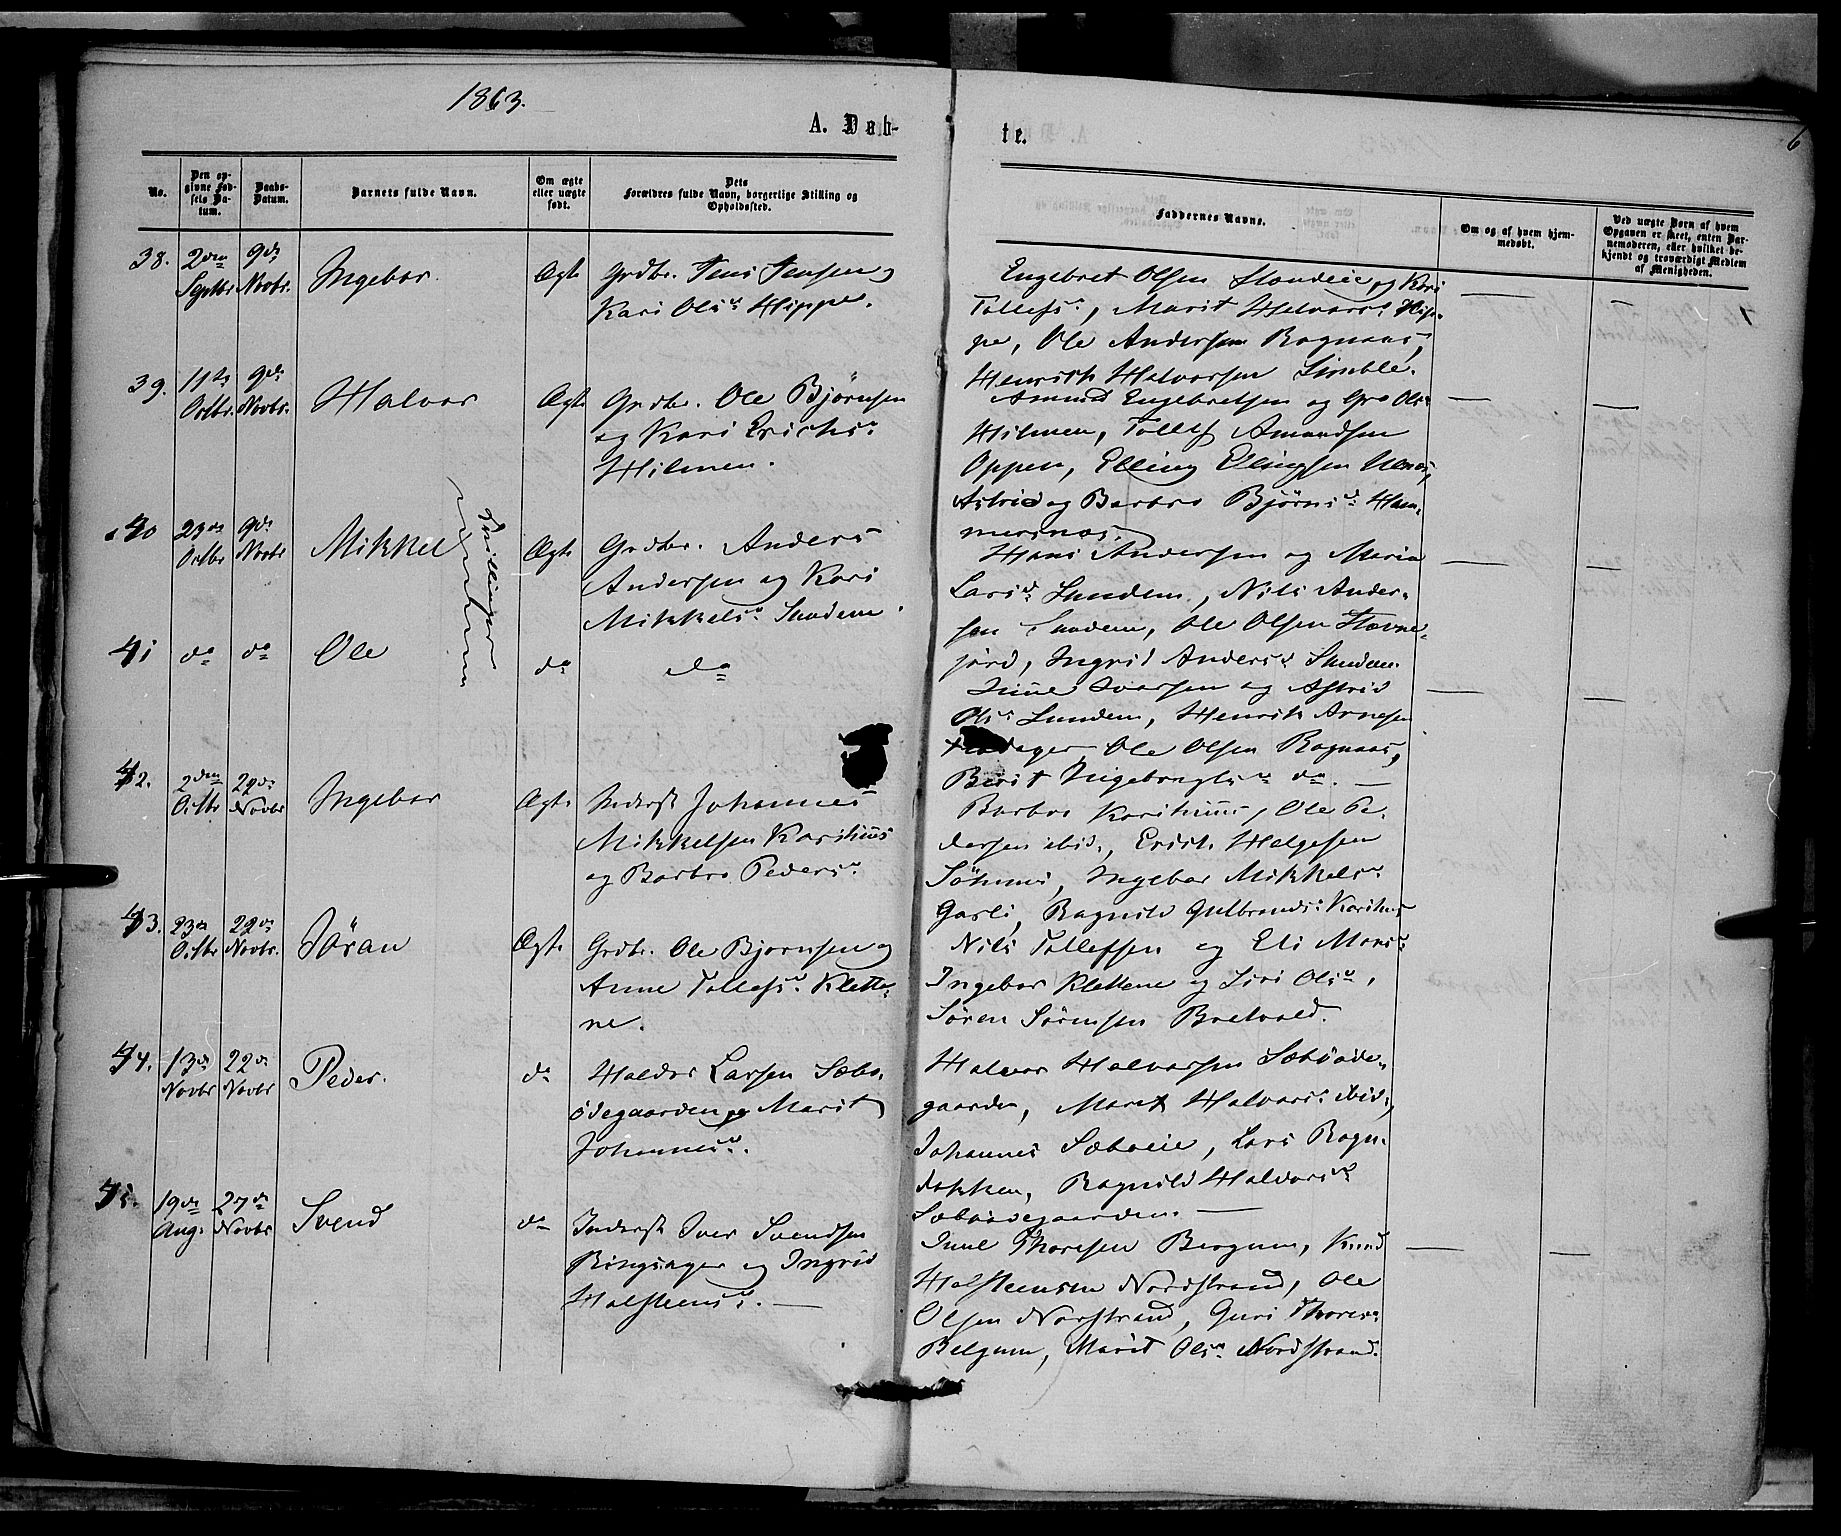 1863.
A. Døb-
te.
6
No.
Den op-
givne Fød-
sels Da-
tum.
Daabs-
Datum.
Barnets fulde Navn.
Om ægte
eller uægte
født.
Dets
Forældres fulde Navn, borgerlige Stilling og
Opholdssted.
Faddernes Navne.
Om og af hvem hjem-
medøbt.
Ved uægte Børn af hvem
Opgaven er skeet, enten Bar-
nemoderen, eller hvilket be-
kjendt og troværdigt Medlem
af Menigheden.
38. 2den Septbr. 9de Novbr. Ingebor. Ægte Grdbr. Jens Jensen og
Kari Olsd. Hippe.
Engebret Olsen og Kari
Tollefsd., Marit Halvorsd. Hip-
pe, Ole Andersen Rognaas,
Henrik Halvorsen
39. 11te Octbr. 9de Novbr. Halvor Ægte Grdbr. Ole Bjørnsen
og Kari Erichsd.
Hilmen.
Amund Engebretsen og Gro Olsd.
Hilmen, Tollef Amundsen
Oppen, Elling Ellingsen
Astrid og Barbro Bjørnsd. Ham-
mersnæs.
40 23de Octbr 9de Novbr Mikkel Ægte Grdbr. Anders
Andersen og Kari
Mikkelsd. Sundem.
Tvillinger
Hans Andersen og Maria
Larsd. Sundem, Nils Ander-
sen Sundem, Ole Olsen
jord, Ingrid Andersd. Sundem
41 do do Ole do do
Iver Ivarsen og Astrid
Olsd. Sundem, Henrik Arnesen
Ole Olsen Rognaas,
Berit Ingebregtsd. do. —
42. 2den Octbr 22de Novbr Ingebor Ægte Inderst Johannes
Mikkelsen Karihuus
og Barbro Pedersd.
Barbro Karihuus, Ole Pe-
dersen ibid., Erich Helgesen
Ingebor Mikkelsd.
Garli, Ragnild Gulbrandsd. Karihus
43. 23de Octbr 22de Novbr. Jöran Ægte Grdbr. Ole Bjørnsen og
Anne Tollefsd. Klette-
ne.
Nils Tollefsen og Eli
Ingebor Klettene og Siri Olsd.,
Søren Sörensen
44. 13de Novbr 22de Novbr Peder. do Haldor Larsen Sæbo-
ödegaarden og Marit
Johannesd.
Halvor Halvorsen Sæboöde-
gaarden, Marit Halvorsd. ibid.,
Johannes Sæboeie, Lars Rogn-
bakken, Ragnild Halvorsd.
Sæboödegaarden. —
45. 19de Aug. 27de Novbr Svend do Inderst Iver Svendsen
Ringsager og Ingrid
Halsteensd. —
Juul Thoresen Bergum, Knud
Halsteensen Nordstrand, Ole
Olsen Norstrand, Guri Thoresd.
Belgum, Marit Olsd. Nordstrand.